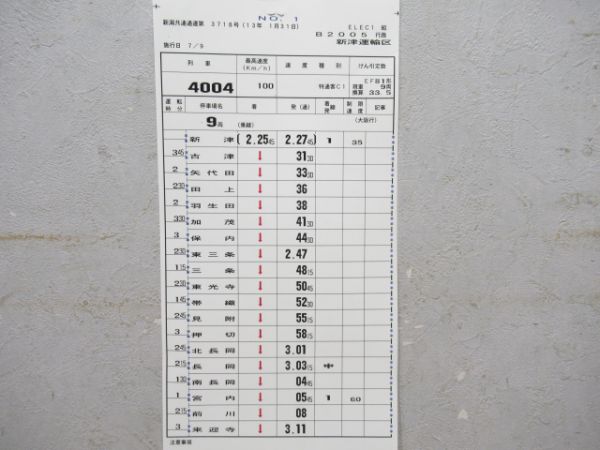 NO. 1
新潟共通通達第 3716号(13年 1月31日)
ELEC1 組
B2005 行路
施行日 7/9
新津運輸区
列車 最高速度(Km/h) 速度種別 けん引定数
4004 100 特通客C1 EF81形 現車 9両 換算 33.5
運転時分 停車場名 着 発(通) 着発線 制限速度 記事
9両 (乗継) (大阪行)
新津 (2.25 45 2.27 45) 1 35
3 45
吉津 ↓ 31 30
2
矢代田 ↓ 33 30
2 30
田上 ↓ 36
2
羽生田 ↓ 38
3 30
加茂 ↓ 41 30
3
保内 ↓ 44 30
2 30
東三条 ↓ 2.47
1 15
三条 ↓ 48 15
2 30
東光寺 ↓ 50 45
1 45
帯織 ↓ 52 30
2 45
見附 ↓ 55 15
3
押切 ↓ 58 15
2 45
北長岡 ↓ 3.01
2 15
長岡 ↓ 3.03 15 中
1 30
南長岡 ↓ 04 45
1
宮内 ↓ 05 45 1 60
2 15
前川 ↓ 08
3
来迎寺 ↓ 3.11
注意事項